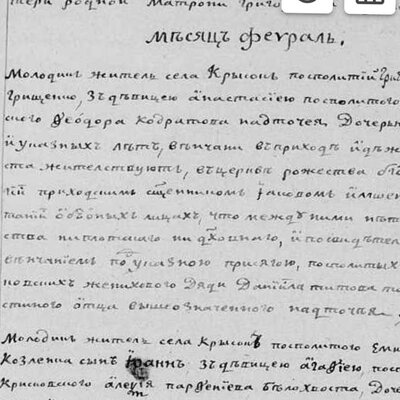 тери родной Матрони Григо
мѣсяцъ февраль.
Молодикъ житель села Крысокъ посполитій Григ
Грищенко, зъ дѣвицею анастасіею посполитого
ского Ѳеодора Кодратова надточея Дочерью
и указныхъ лѣтъ, вѣнчани въ приходѣ идѣж
ста жителствуютъ, въ церкви рожества бг
ей приходскимъ сщенникомъ Іаковомъ
лицахъ, что между ними нѣт
ства ни плотскаго ни дховнаго, и посвидѣтел
вѣнчаніем под указною присягою, посполитых
новскихъ женихового Дяди Даніила титова
стного отца вышеозначенного надточея
Молодикъ житель села Крысокъ посполитого Еми
Козленка сынъ Іоаннъ зъ дѣвицею агафіею, посп
Крисковского алеѯія парфеніева бѣлохвоста, Доче